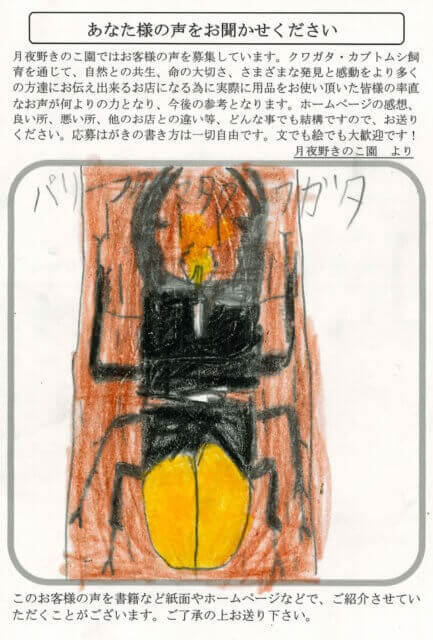 あなた様の声をお聞かせください
月夜野きのこ園ではお客様の声を募集しています。クワガタ・カブトムシ飼
育を通じて、自然との共生、命の大切さ、さまざまな発見と感動をより多く
の方達にお伝え出来るお店になる為に実際に用品をお使い頂いた皆様の率直
なお声が何よりの力となり、今後の参考となります。ホームページの感想、
良い所、悪い所、他のお店との違い等、どんな事でも結構ですので、お送り
ください。応募はがきの書き方は一切自由です。文でも絵でも大歓迎です！
月夜野きのこ園　より
パリーフタマタクワガタ
このお客様の声を書籍など紙面やホームページなどで、ご紹介させてい
ただくことがございます。ご了承の上お送り下さい。